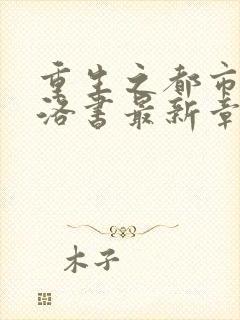 重生之都市
洛书最新章
木子